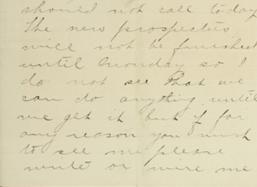 should not call today
The new prospectus
will not be finished
until Monday so I
do not see that we
can do anything until
we get it but if for
any reason you wish
to see me please
write or wire me